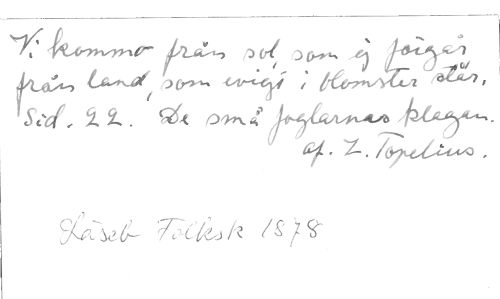 Vi kommo från sol, som ej förgår
från land, som evigt i blomster står.
Sid. 22. De små foglarnas klagan.
af. Z. Topelius.
Läseb Folksk 1878